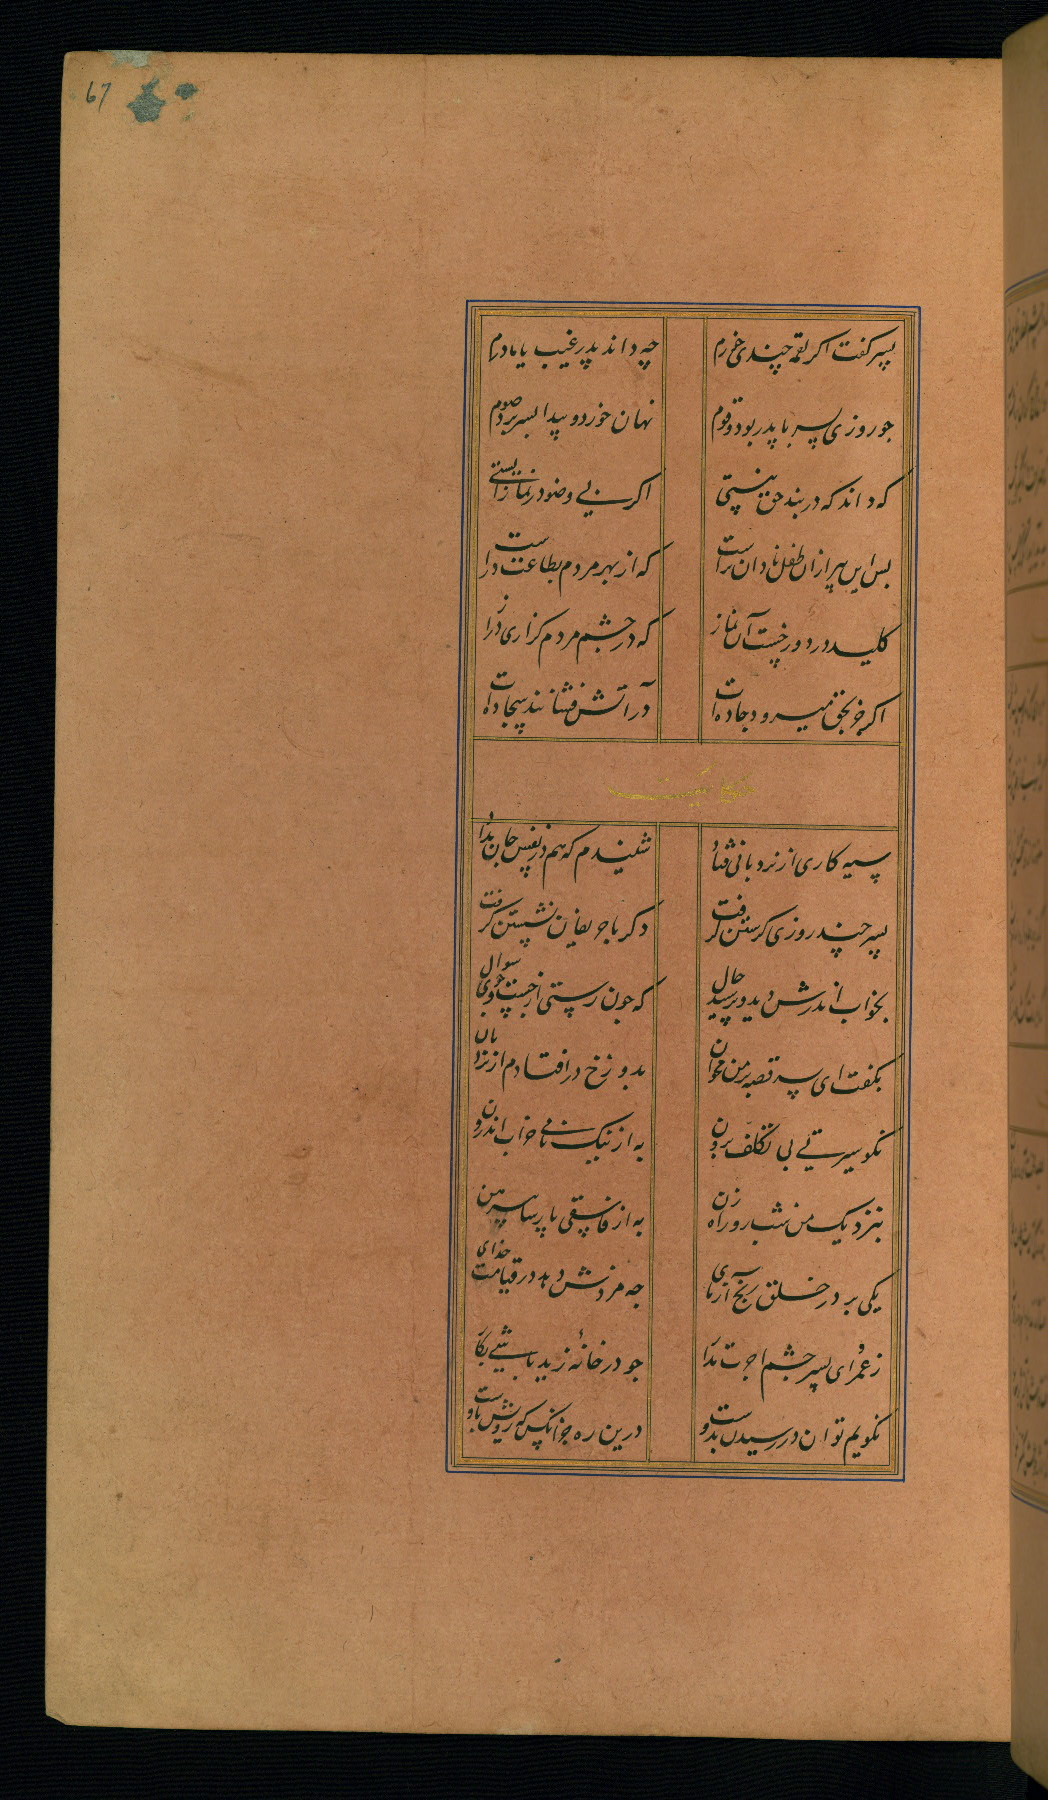 67
پسر گفت اگر لقمه چندی خورم چه داند پدر غیب یا مادرم
جو روزی پسر با پدر بود و قوم نهان خورد و پیدا بسر برد صوم
که داند که در بند حق نیستی اکر بی وضو در نماز ایستی
بس این پیر ازان طفل نادان تراست که از بهر مردم بطاعت دراست
کلید در دوزخست آن نماز که در جشم مردم کزاری دراز
اکر جز بحق میرود جاده‌ات در آتش فشانند سجاده‌ات
حکایت
سیه کاری از نردبانی فتاد شنیدم که هم در نفس جان بداد
پسر چند روزی کرستن کرفت دکر با حریفان نشستن کرفت
بخواب اندرش دید و پرسید حال که جون رستی از
بکفت ای پسر قصه بر من مخوان بدوزخ در افتادم از نردبان
نکو سیرتی بی تکلف برون به از نیک نامی خراب اندرون
بنزدیک من شب رو راه زن به از فاسقی پارسا پیرهن
یکی بر در خلق رنج آزمای جه مزدش دهد در قیامت خدای
ز عمرو ای پسر جشم اجرت مدار جو در خانهٔ زید باشی بکار
نکویم توان در رسیدن بدوست درین ره جز آنکس که رویش باوست